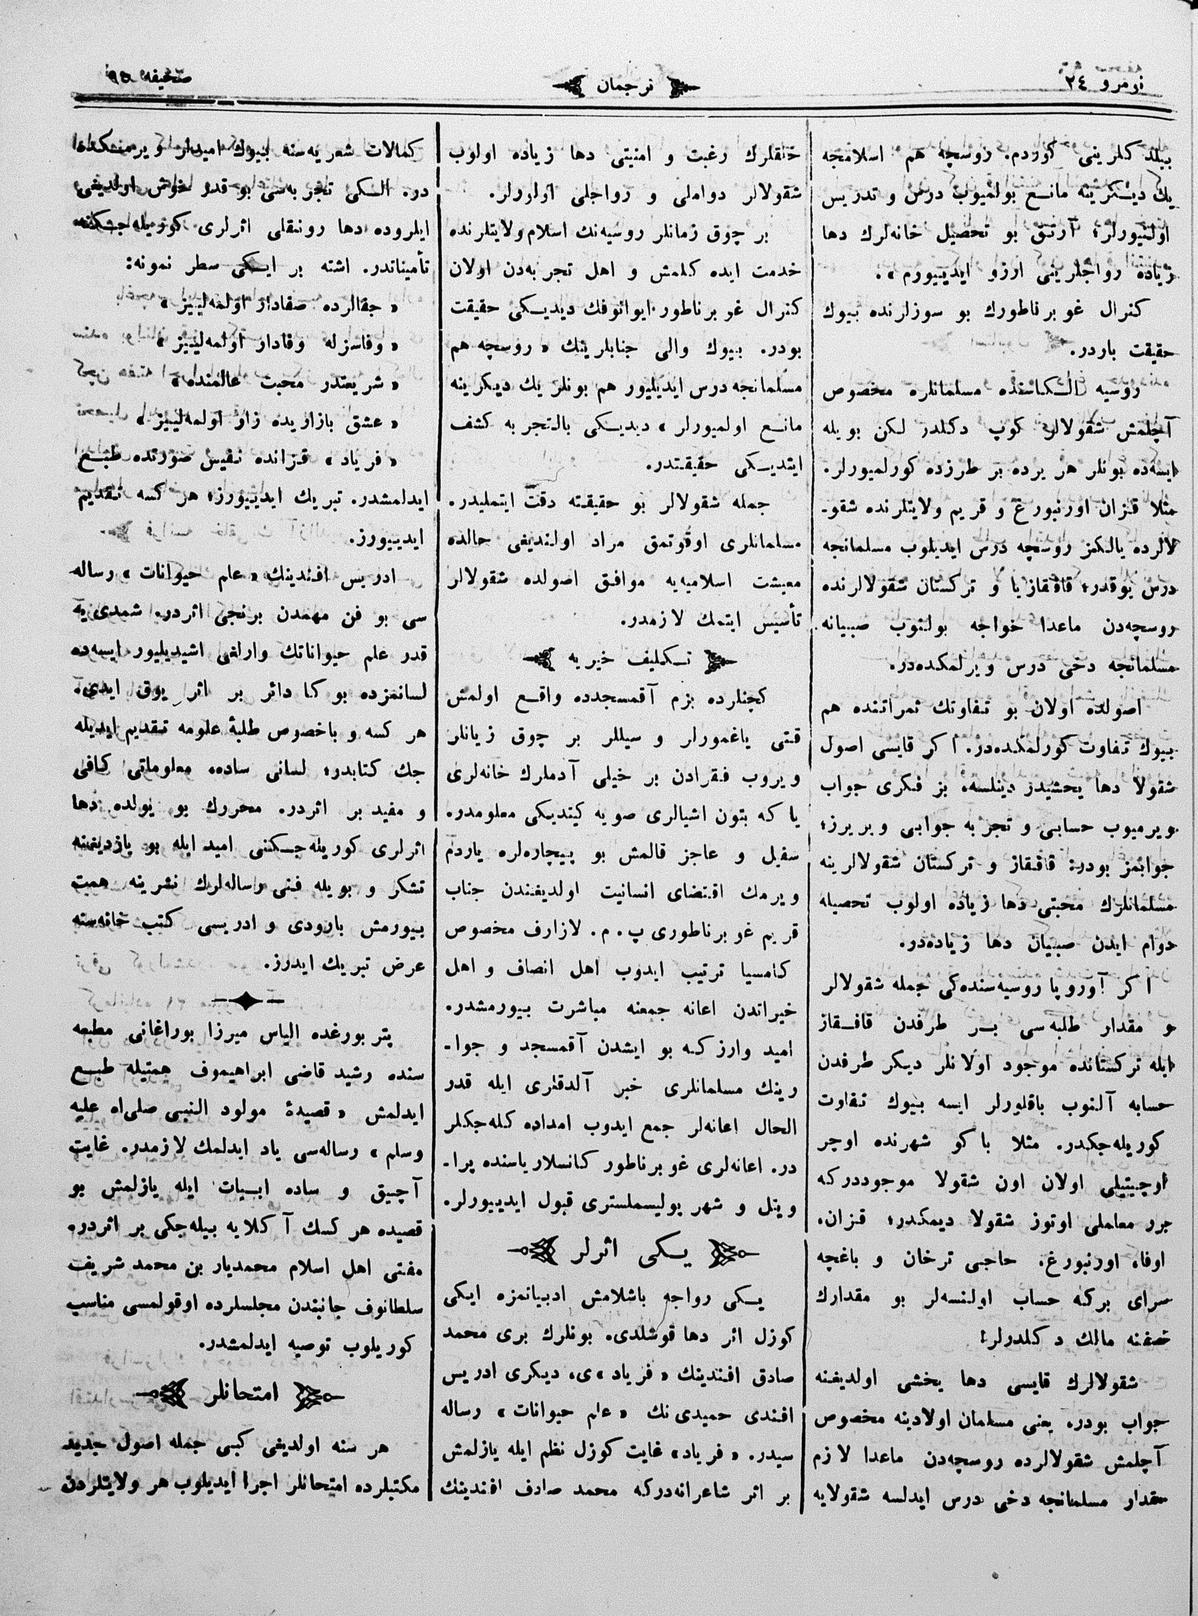 نومرو ٢٤
ترجمان
صحيفه ٩٥
بيلدكلرينى كوردم. روسچه هم اسلامجه
يك ديكرينه مانع بولنميوب درس و تدريس
اولنيورلر؛ آرتق بو تحصيل خانه‌لرك دها
زياده رواجلرينى ارزو ايدييورم».
كنرال غوبرناطورك بو سوزلرنده بيوك
حقيقت باردر.
روسيه الكاسنده مسلمانلره مخصوص
آچلمش شقولالر كوپ دكلدر لكن بويله
ايسه‌ده بونلر هر يرده بر طرزده كورلميورلر.
مثلا قزان اورنبورغ و قريم ولايتلرنده شقو-
لالرده يالكز روسچه درس ايديلوب مسلمانجه
درس يوقدر؛ قافقازيا و تركستان شقولالرنده
روسچه‌دن ماعدا خواجه بولنوب صبيانه
مسلمانجه دخى درس ويرلمكده‌در.
اصولده اولان بو تفاوتك ثمراتنده هم
بيوك تفاوت كورلمكده‌در. اكر قايسى اصول
شقولا دها يخشيدر دينلسه، بز فكرى جواب
ويرميوب حسابى و تجربه جوابى ويريرز؛
جوابمز بودر: قافقاز و تركستان شقولالرينه
مسلمانلرك محبتى دها زياده اولوب تحصيله
دوام ايدن صبيان دها زياده‌در.
اكر آوروپا روسيه‌سنده‌كى جمله شقولالر
و مقدار طلبه‌سى بر طرفدن قافقاز
ايله تركستانده موجود اولانلر ديكر طرفدن
حسابه آلنوب باقلورلر ايسه بيوك تفاوت
كوريله‌جكدر. مثلا باكو شهرنده اوچر
اوچيتيلى اولان اون شقولا موجوددركه
برر معلملى اوتوز شقولا ديمكدر؛ قزان،
اوفاه اورنبورغ، حاجى ترخان و باغچه
سراى بركه حساب اولنسه‌لر بو مقدارك
نصفنه مالك دكلدرلر!
شقولالرك قايسى دها يخشى اولديغنه
جواب بودر. يعنى مسلمان اولادينه مخصوص
آچلمش شقولالرده روسچه‌دن ماعدا لازم
مقدار مسلمانجه دخى درس ايدلسه شقولايه
خلقلرك رغبت و امنيتى دها زياده اولوب
شقولالر دواملى و رواجلى اولورلر.
بر چوق زمانلر روسيه‌نك اسلام ولايتلرنده
خدمت ايده كلمش و اهل تجربه‌دن اولان
كنرال غوبرناطور ايوانوفك ديديكى حقيقت
بودر. بيوك والى جنابلرينك «روسچه هم
مسلمانجه درس ايديليور هم بونلر يك ديكرينه
مانع اولميورلر» ديديكى بالتجربه كشف
ايتديكى حقيقتدر.
جمله شقولالر بو حقيقته دقت ايتمليدر.
مسلمانلرى اوقوتمق مراد اولنديغى حالده
معيشت اسلاميه‌يه موافق اصولده شقولالر
تأسيس ايتمك لازمدر.
تكليف خيريه
كچنلرده بزم آقمسجدده واقع اولمش
قتى ياغمورلر و سيللر بر چوق زيانلر
ويروب فقرادن بر خيلى آدملرك خانه‌لرى
ياكه بتون اشيالرى صويه كيتديكى معلومدر.
سفيل و عاجز قالمش بو بيچاره‌لره ياردم
ويرمك اقتضاى انسانيت اولديغندن جناب
قريم غوبرناطورى پ. م. لازارف مخصوص
كامسيا ترتيب ايدوب اهل انصاف و اهل
خيراتدن اعانه جمعنه مباشرت بيورمشدر.
اميد واركه بو ايشدن آقمسجد و جوا-
رينك مسلمانلرى خبر آلدقلرى ايله قدر
الحال اعانه‌لر جمع ايدوب امداده كله‌جكلر
در. اعانه‌لرى غوبرناطور كانسلارياسنده پرا-
ويتل و شهر پوليسملسترى قبول ايدييورلر.
يكى اثرلر
يكى رواجه باشلامش ادبياتمزه ايكى
كوزل اثر دها قوشلدى. بونلرك برى محمد
صادق افندينك «فرياد»ى، ديكرى ادريس
افندى حميدى‌نك «علم حيوانات» رساله
سيدر. «فرياد» غايت كوزل نظم ايله يازلمش
بر اثر شاعرانه‌دركه محمد صادق افندينك
كمالات شعريه‌سنه بيوك اميدلر ويرمكده
در. الكى تجربه‌سى بو قدر خوش اولديغى
ايلروده دها رونقلى اثرلرى كوريله‌جكنه
تأميناتدر. اشته بر ايكى سطر نمونه:
« جفالرده صفادار اولمه‌لييز »
« وفاسزله وفادار اولمه‌لييز »
« شريعتدر محبت عالمنده »
« عشق بازاويده زاو اولمه‌لييز »
«فرياد» قزانده نفيس صورتده طبع
ايدلمشدر. تبريك ايدييورز؛ هر كسه تقديم
ايدييورز.
ادريس افندينك «علم حيوانات» رساله
سى بو فن مهمدن برنجى اثردر. شمدى‌يه
قدر علم حيواناتك وارلغى اشيديليور ايسه‌ده
لسانمزده بوكا دائر بر اثر يوق ايدى.
هر كسه و باخصوص طلبهٔ علومه تقديم ايديله
جك كتابدر؛ لسانى ساده، معلوماتى كافى
و مفيد بر اثردر. محررك بو يولده دها
اثرلرى كوريله‌جكنى اميد ايله بو يازديغنه
تشكر و بويله فنى رساله‌لرك نشرينه همت
بيورمش بارودى و ادريسى كتب خانه‌سنه
عرض تبريك ايدرز.
پتربورغده الياس ميرزا بوراغانى مطبعه
سنده رشيد قاضى ابراهيموف همتيله طبع
ايدلمش «قصيدهٔ مولود النبى صلى‌اه عليه
وسلم» رساله‌سى ياد ايدلمك لازمدر. غايت
آچيق و ساده ابيات ايله يازلمش بو
قصيده هر كسك آكلايه بيله‌جكى بر اثردر.
مفتى اهل اسلام محمديار بن محمد شريف
سلطانوف جانبندن مجلسلرده اوقولمسى مناسب
كوريلوب توصيه ايدلمشدر.
امتحانلر
هر سنه اولديغى كبى جمله اصول جديد
مكتبلرده امتحانلر اجرا ايديلوب هر ولايتلردن